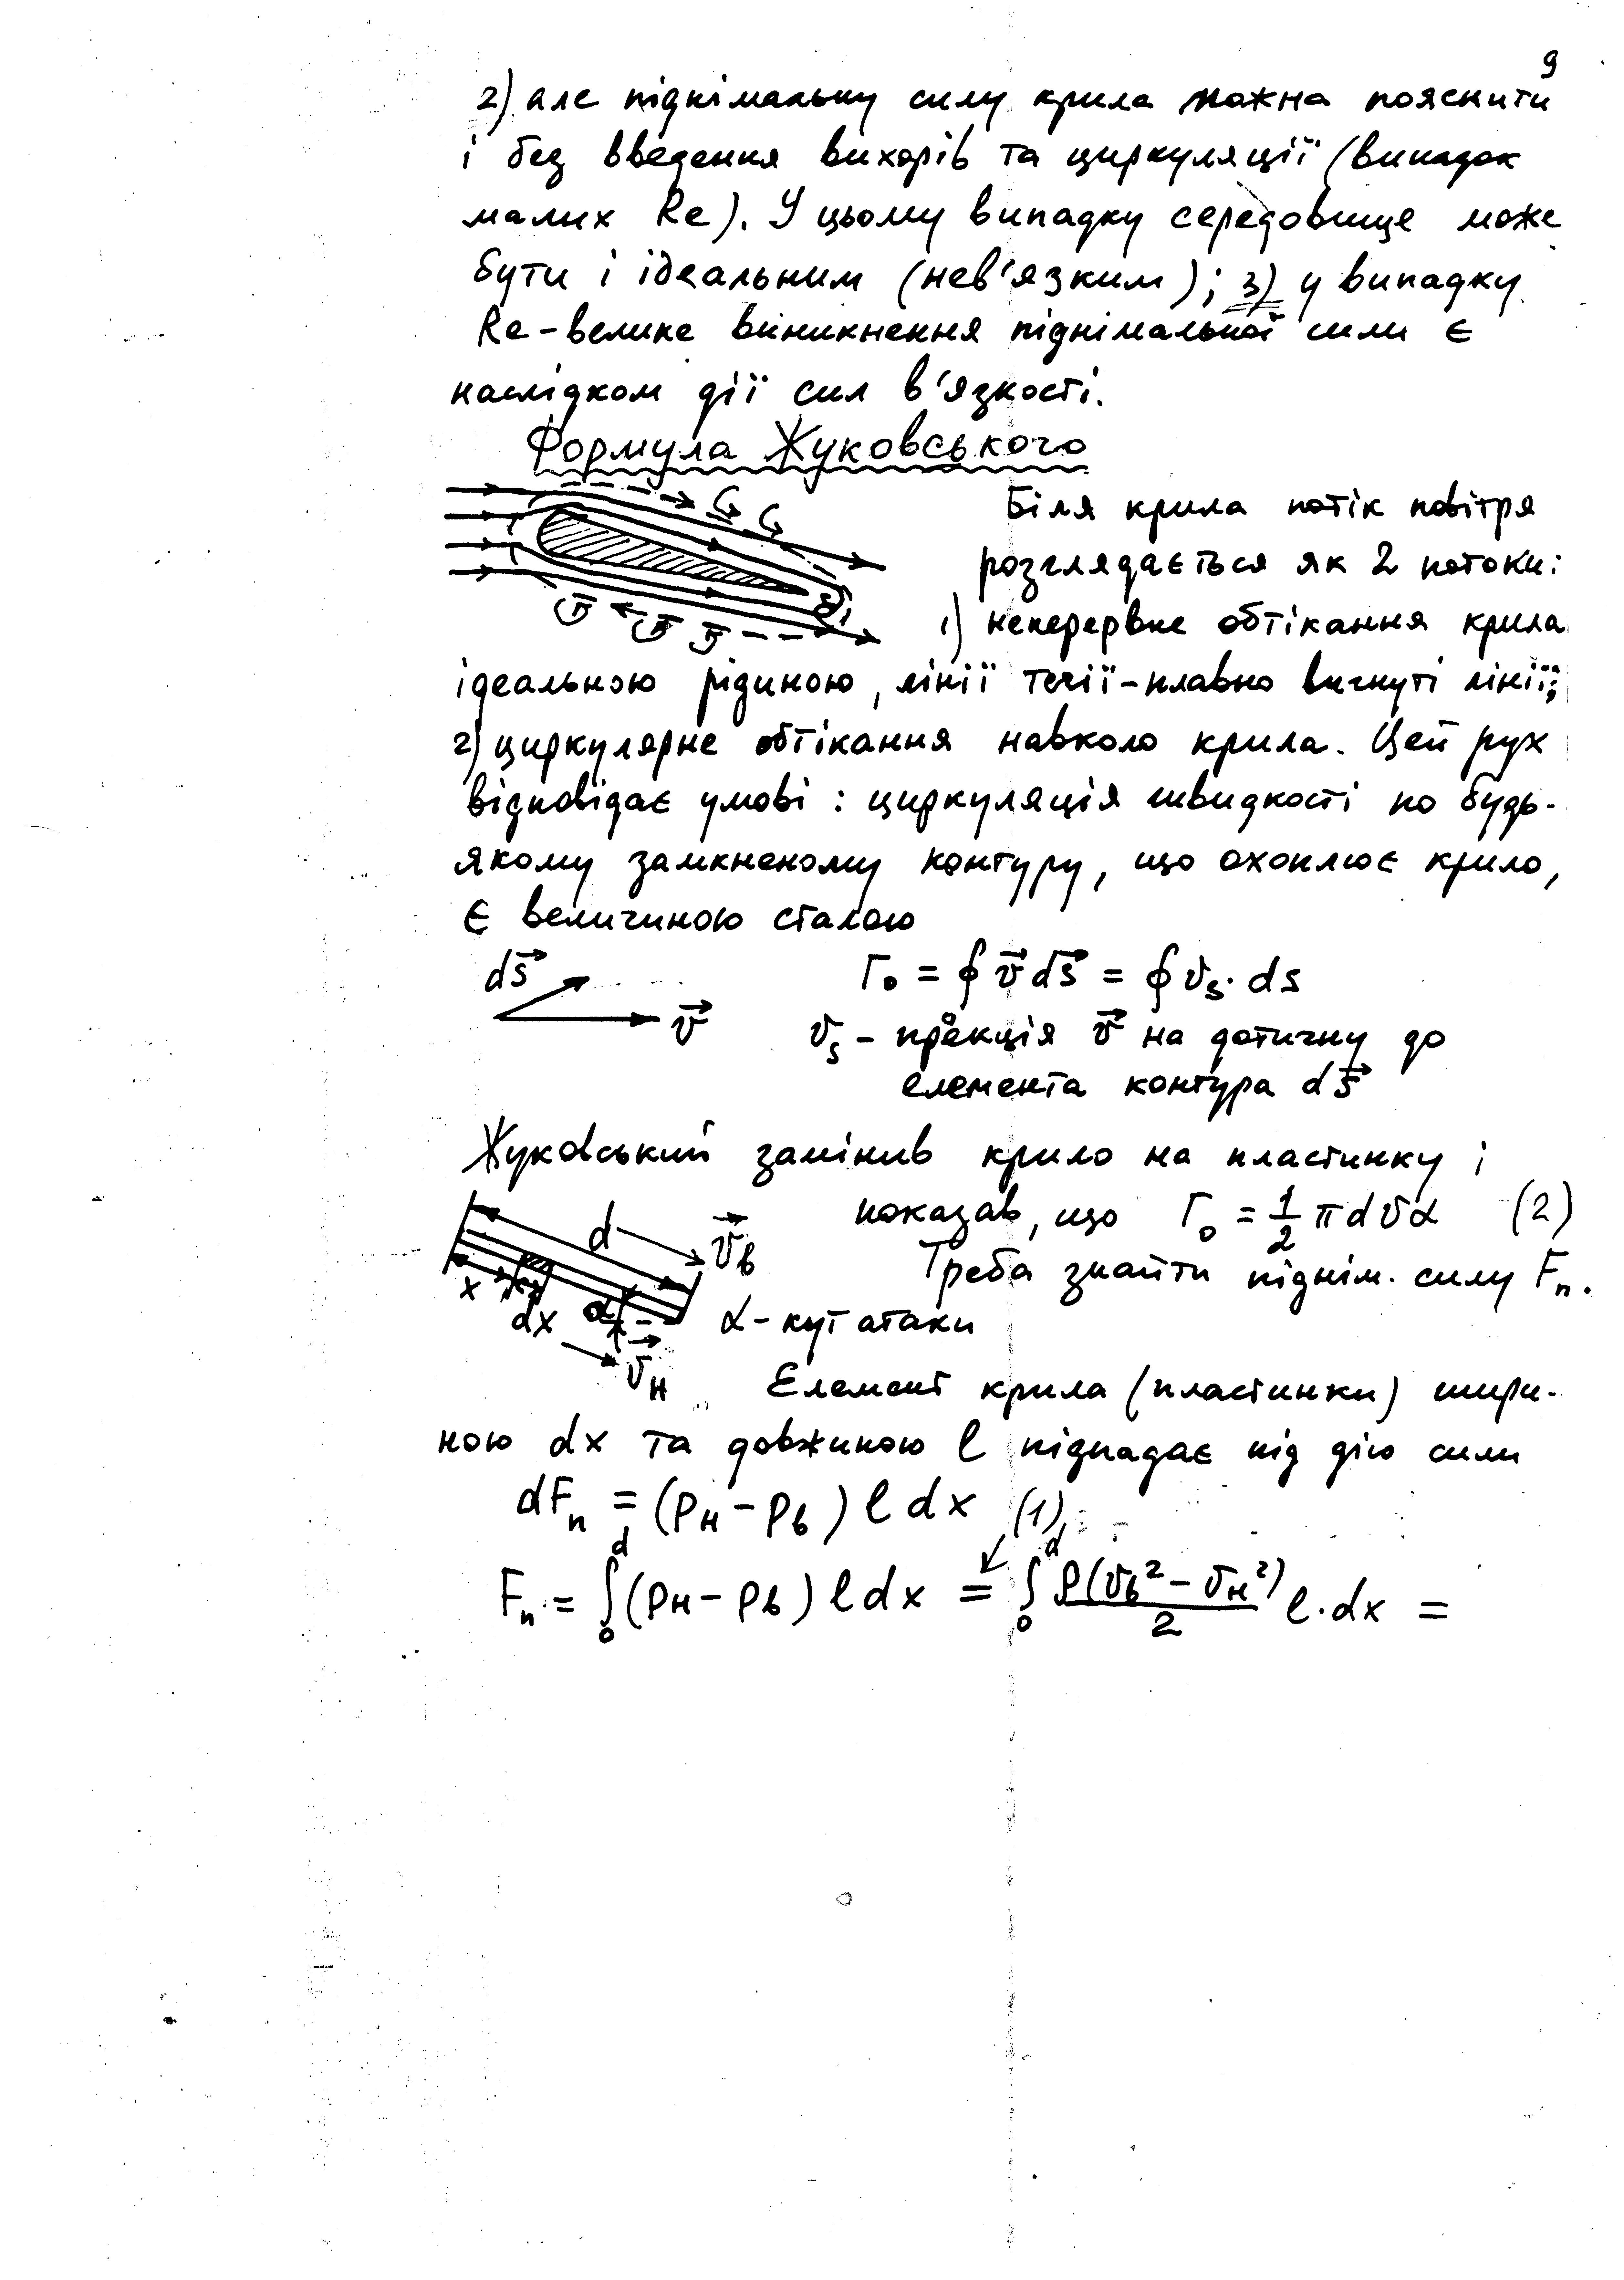 9
2) але піднімальну силу крила можна пояснити
і без введення вихорів та циркуляції (випадок
малих Re). У цьому випадку середовище може
бути і ідеальним (нев'язким); 3) у випадку
Re-велике виникнення піднімальної сили є
наслідком дії сил в'язкості.
Формула Жуковського
Біля крила потік повітря
розглядається як 2 потоки:
1) неперервне обтікання крила
ідеальною рідиною, лінії течії-плавно вигнуті лінії;
2) циркулярне обтікання навколо крила. Цей рух
відповідає умові: циркуляція швидкості по будь-
якому замкненому контуру, що охоплює крило,
є величиною сталою
ds⃗ v⃗
Γ₀ = ∮ v⃗ ds⃗ = ∮ vₛ · ds
vₛ - проекція v⃗ на дотичну до
елемента контура ds⃗
Жуковський замінив крило на пластинку і
показав, що Γ₀ = 1/2 π d v α (2)
Треба знайти піднім. силу Fп.
d v⃗в
x dx α
α - кут атаки
v⃗н
Елемент крила (пластинки) шири-
ною dx та довжиною l підпадає під дію сили
dFп = (pн - pв) l dx (1)
Fп = ∫₀ᵈ (pн - pв) l dx = ∫₀ᵈ ρ(vв² - vн²)/2 l · dx =